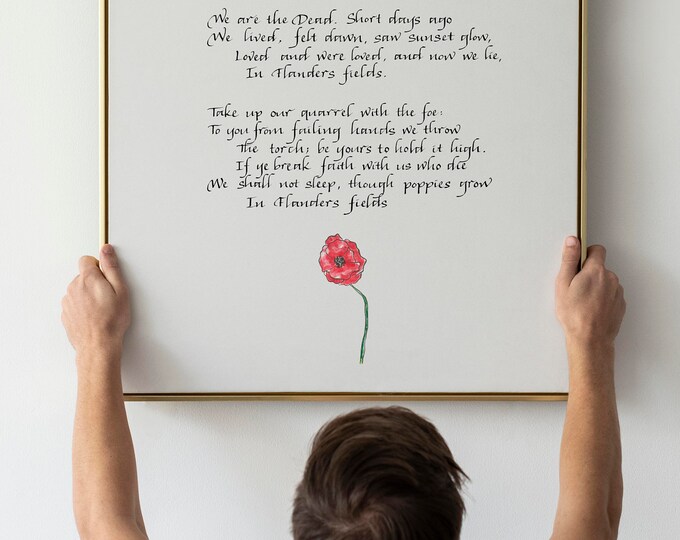 We are the Dead. Short days ago
We lived, felt dawn, saw sunset glow,
Loved and were loved, and now we lie,
In Flanders fields.
Take up our quarrel with the foe:
To you from failing hands we throw
The torch; be yours to hold it high.
If ye break faith with us who die
We shall not sleep, though poppies grow
In Flanders fields